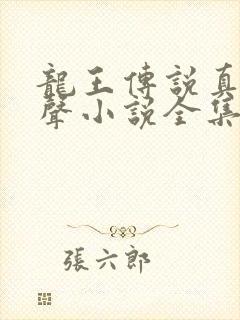 龍王傳說真
聲小說全集
張六郎